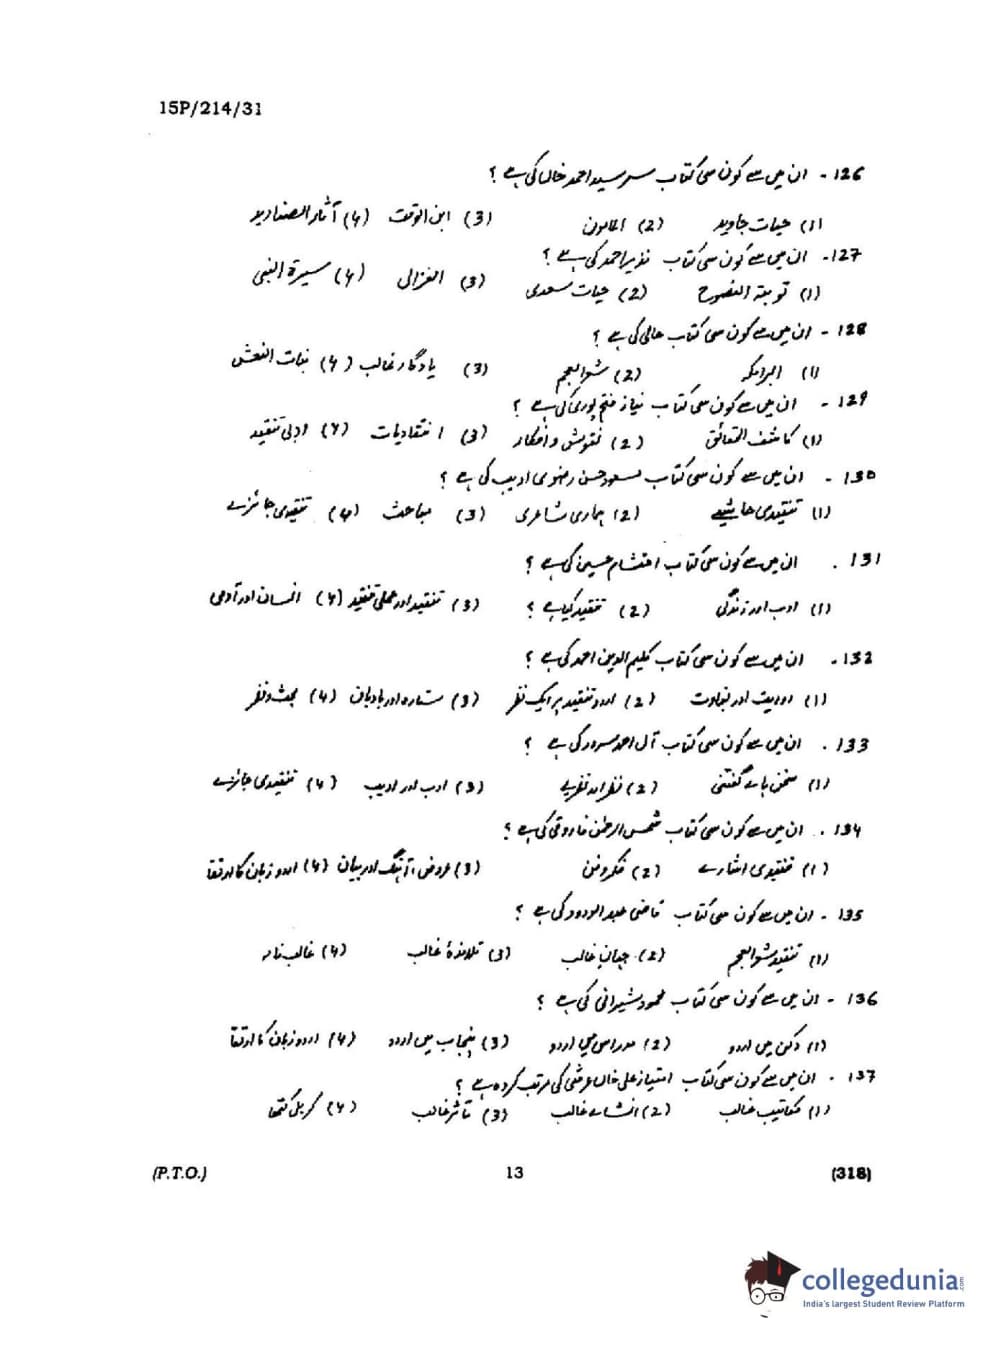 15P/214/31
126 - ان میں سے کون سی کتاب سرسید احمد خاں کی ہے ؟
(1) حیات جاوید (2) المامون (3) ابن الوقت (4) آثار الصنادید
127 - ان میں سے کون سی کتاب نذیر احمد کی ہے ؟
(1) توبتہ النصوح (2) حیات سعدی (3) الغزالی (4) سیرۃ النبی
128 - ان میں سے کون سی کتاب حالی کی ہے ؟
(1) البرامکہ (2) شعرالعجم (3) یادگار غالب (4) بنات النعش
129 - ان میں سے کون سی کتاب نیاز فتح پوری کی ہے ؟
(1) کاشف الحقائق (2) نقوش و افکار (3) انتقادیات (4) ادبی تنقید
130 - ان میں سے کون سی کتاب مسعود حسن رضوی ادیب کی ہے ؟
(1) تنقیدی حاشیے (2) ہماری شاعری (3) مباحث (4) تنقیدی جائزے
131 . ان میں سے کون سی کتاب احتشام حسین کی ہے ؟
(1) ادب اور زندگی (2) تنقید کیا ہے ؟ (3) تنقید اور عملی تنقید (4) انسان اور آدمی
132 - ان میں سے کون سی کتاب کلیم الدین احمد کی ہے ؟
(1) روایت اور بغاوت (2) اردو تنقید پر ایک نظر (3) ستارہ اور بادبان (4) بحث و نظر
133 . ان میں سے کون سی کتاب آل احمد سرور کی ہے ؟
(1) سخن ہائے گفتنی (2) نظر اور نظریے (3) ادب اور ادیب (4) تنقیدی جائزے
134 . ان میں سے کون سی کتاب شمس الرحمٰن فاروقی کی ہے ؟
(1) تنقیدی اشارے (2) فکر و فن (3) عروض، آہنگ اور بیان (4) اردو زبان کا ارتقا
135 - ان میں سے کون سی کتاب قاضی عبدالودود کی ہے ؟
(1) تنقید شعرالعجم (2) جہانِ غالب (3) تلامذۂ غالب (4) غالب نامہ
136 - ان میں سے کون سی کتاب محمود شیرانی کی ہے ؟
(1) دکن میں اردو (2) مدراس میں اردو (3) پنجاب میں اردو (4) اردو زبان کا ارتقا
137 . ان میں سے کون سی کتاب امتیاز علی خاں عرشی کی مرتب کردہ ہے ؟
(1) مکاتیب غالب (2) انشائے غالب (3) تاثر غالب (4) کربل کتھا
(P.T.O.) 13 (318)
collegedunia.com
India's largest Student Review Platform